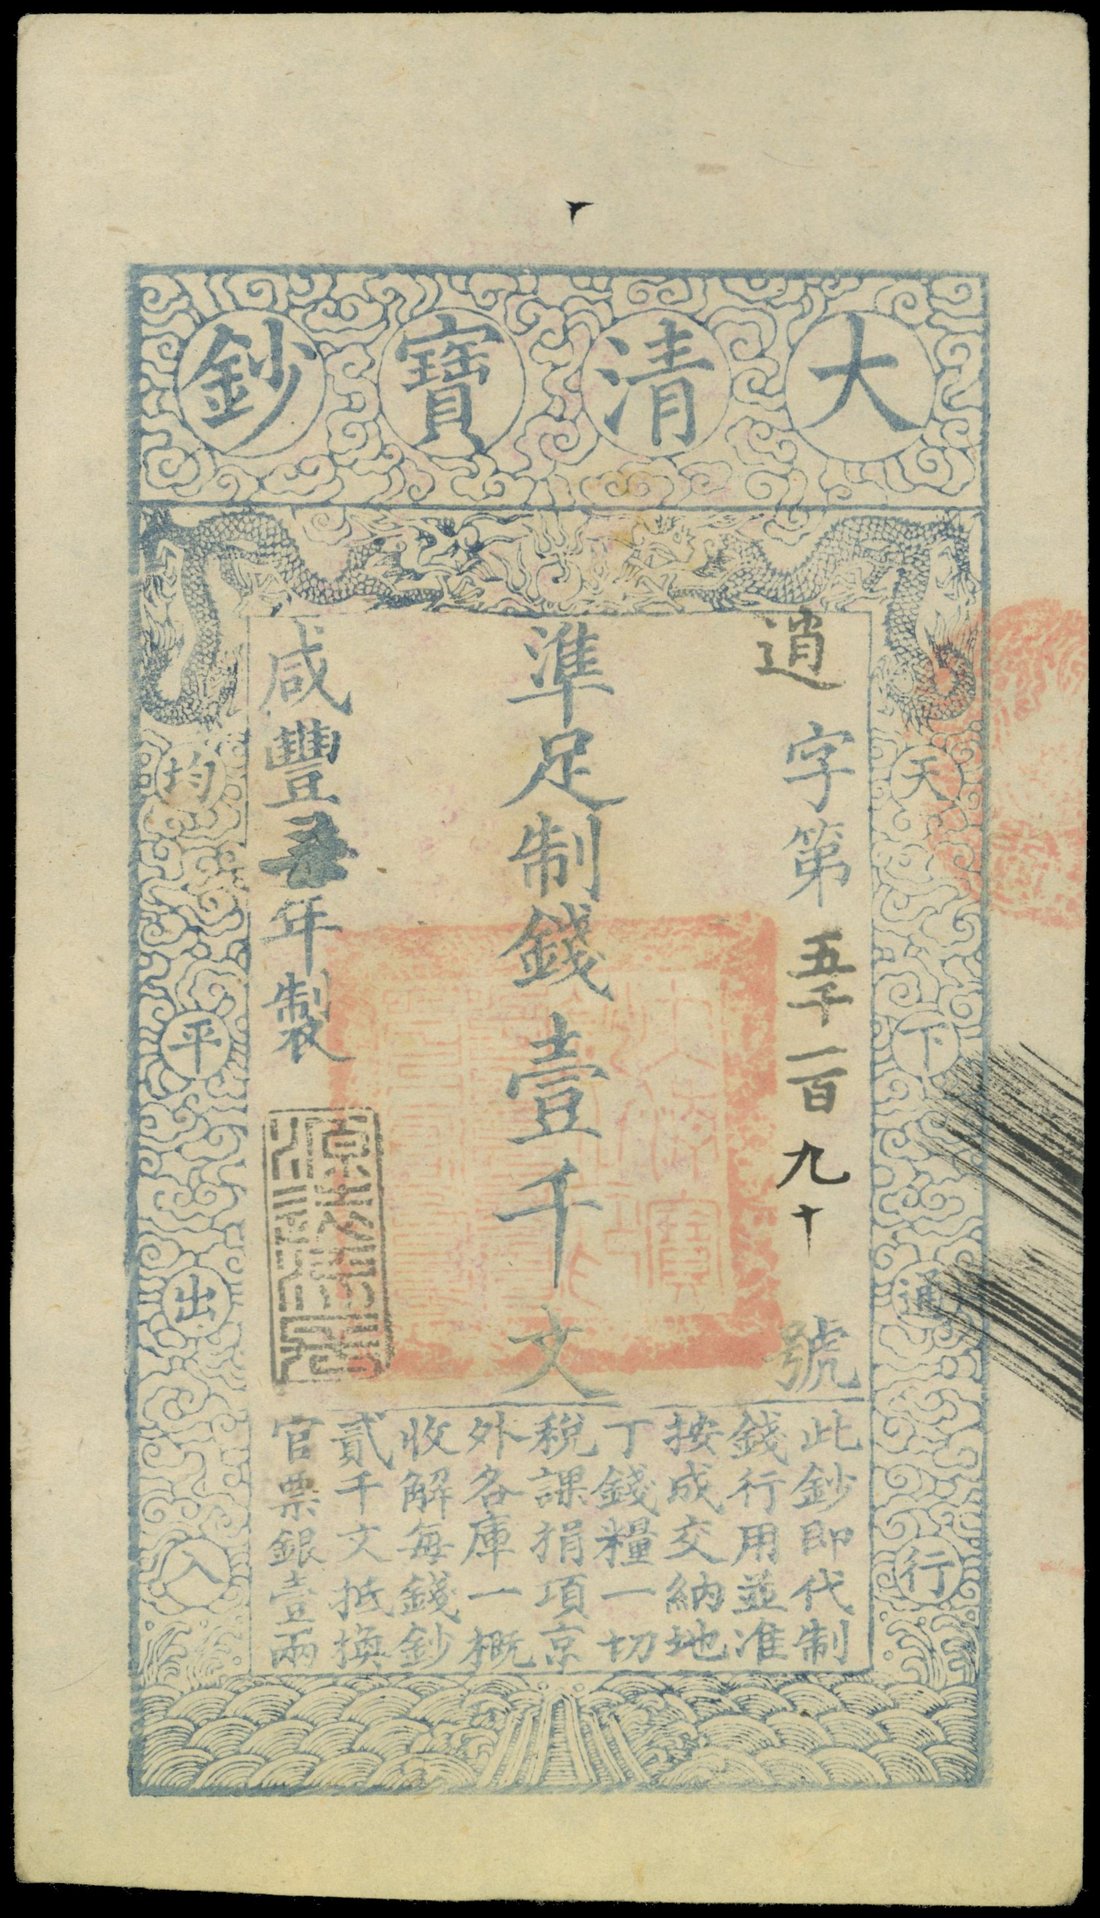 大清寶鈔
天下通行
均平出入
逍字第五千一百九十號
準足制錢壹千文
咸豐年製
此鈔即代制
錢行用並准
按成交納地
丁錢糧一切
稅課捐項京
外各庫一概
收解每錢鈔
貳千文抵換
官票銀壹兩